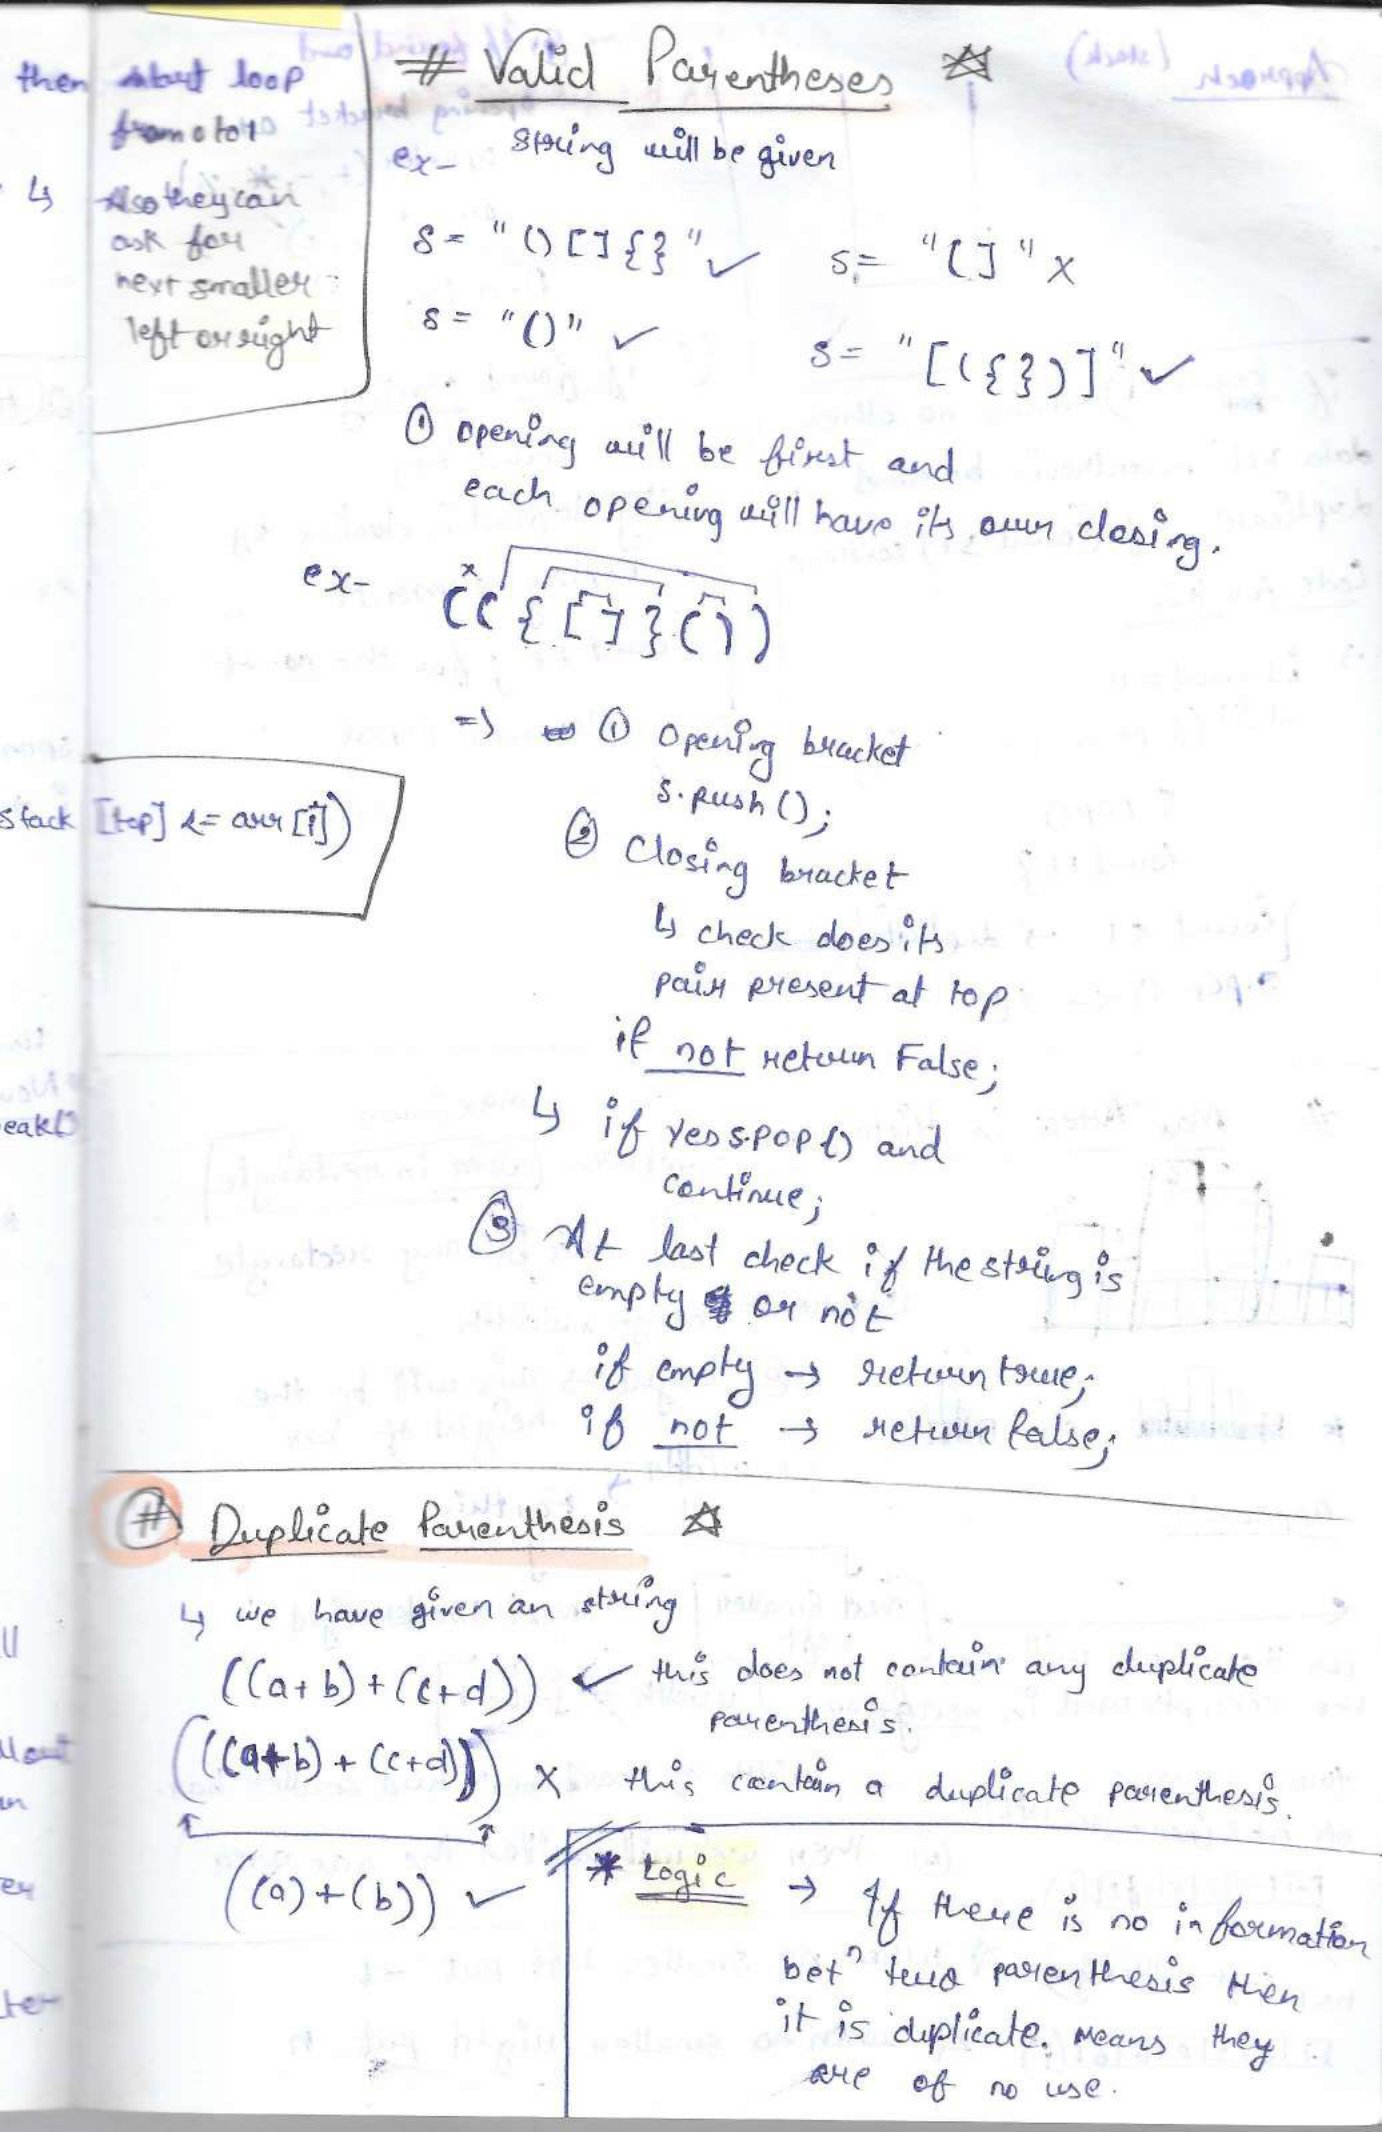 then start loop
from 0 to 1
↳ Also they can
ask for
next smaller
left or right
# Valid Parentheses ☆
ex- string will be given
s = "()[]{}" ✓ s = "(]" x
s = "()" ✓ s = "[({})]" ✓
① opening will be first and
each opening will have its own closing.
ex- (({[]}())
=> ① Opening bracket
s.push();
② Closing bracket
↳ check does its
pair present at top
if not return False;
↳ if yes s.pop() and
continue;
③ At last check if the string is
empty or not
if empty → return true;
if not → return false;
stack [top] <= arr[i])
eak()
# Duplicate Parenthesis ☆
↳ we have given an string
((a+b)+(c+d)) ✓ this does not contain any duplicate
parenthesis.
(((a+b)+(c+d))) x this contain a duplicate parenthesis.
((a)+(b)) ✓
* Logic → If there is no information
betⁿ two parenthesis then
it is duplicate. Means they
are of no use.